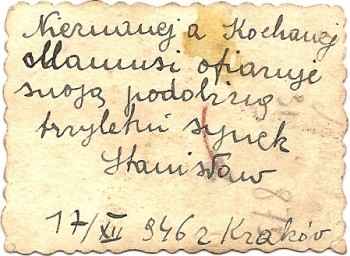 Nieznanej a Kochanej
Mamusi ofiaruje
swoją podobiznę
trzyletni synek
Stanisław
17/XII 946 r Kraków